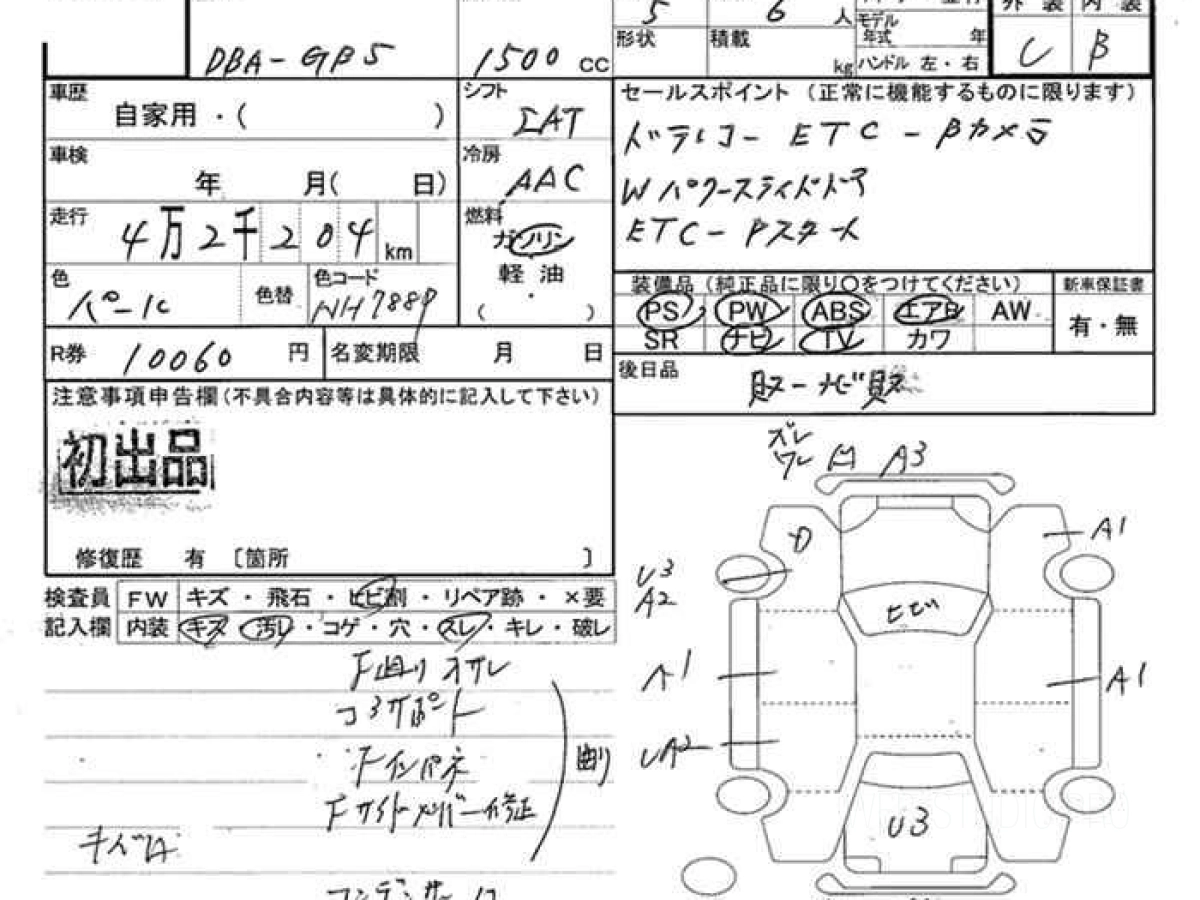 5 6 人 モデル 外装 内装
形状 積載 年式 年
DBA-GB5 1500 cc kg ハンドル 左・右 C B
車歴 シフト セールスポイント (正常に機能するものに限ります)
自家用・( )
ドラレコー ETC - Bカメラ
車検 冷房
年 月( 日) AAC Wパワースライドドア
走行 燃料
4万2千204km ガソリン ETC - Pスタート
色 色替 色コード 軽油
パール NH788P ・
( )
装備品 (純正品に限り○をつけてください) 新車保証書
PS PW ABS エアB AW 有・無
SR ナビ TV カワ
R券 10060 円 名変期限 月 日
後日品
注意事項申告欄(不具合内容等は具体的に記入して下さい)
初出品
修復歴 有 〔箇所 〕
ズレ
ワレ A3
D A1
U3
A2
ヒビ
A1 A1
UA2
U3
検査員 FW キズ・飛石・ヒビ割・リペア跡・×要
記入欄 内装 キズ・汚レ・コゲ・穴・スレ・キレ・破レ
コアサポート
Fインパネ
Fサイドメンバー修正